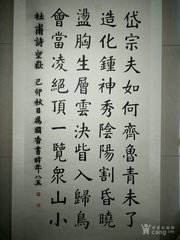 岱宗夫如何齊魯青未了
造化鍾神秀陰陽割昏曉
盪胸生層雲決眥入歸鳥
會當凌絕頂一覽衆山小
杜甫詩望嶽 己卯秋日 國香書時年八五